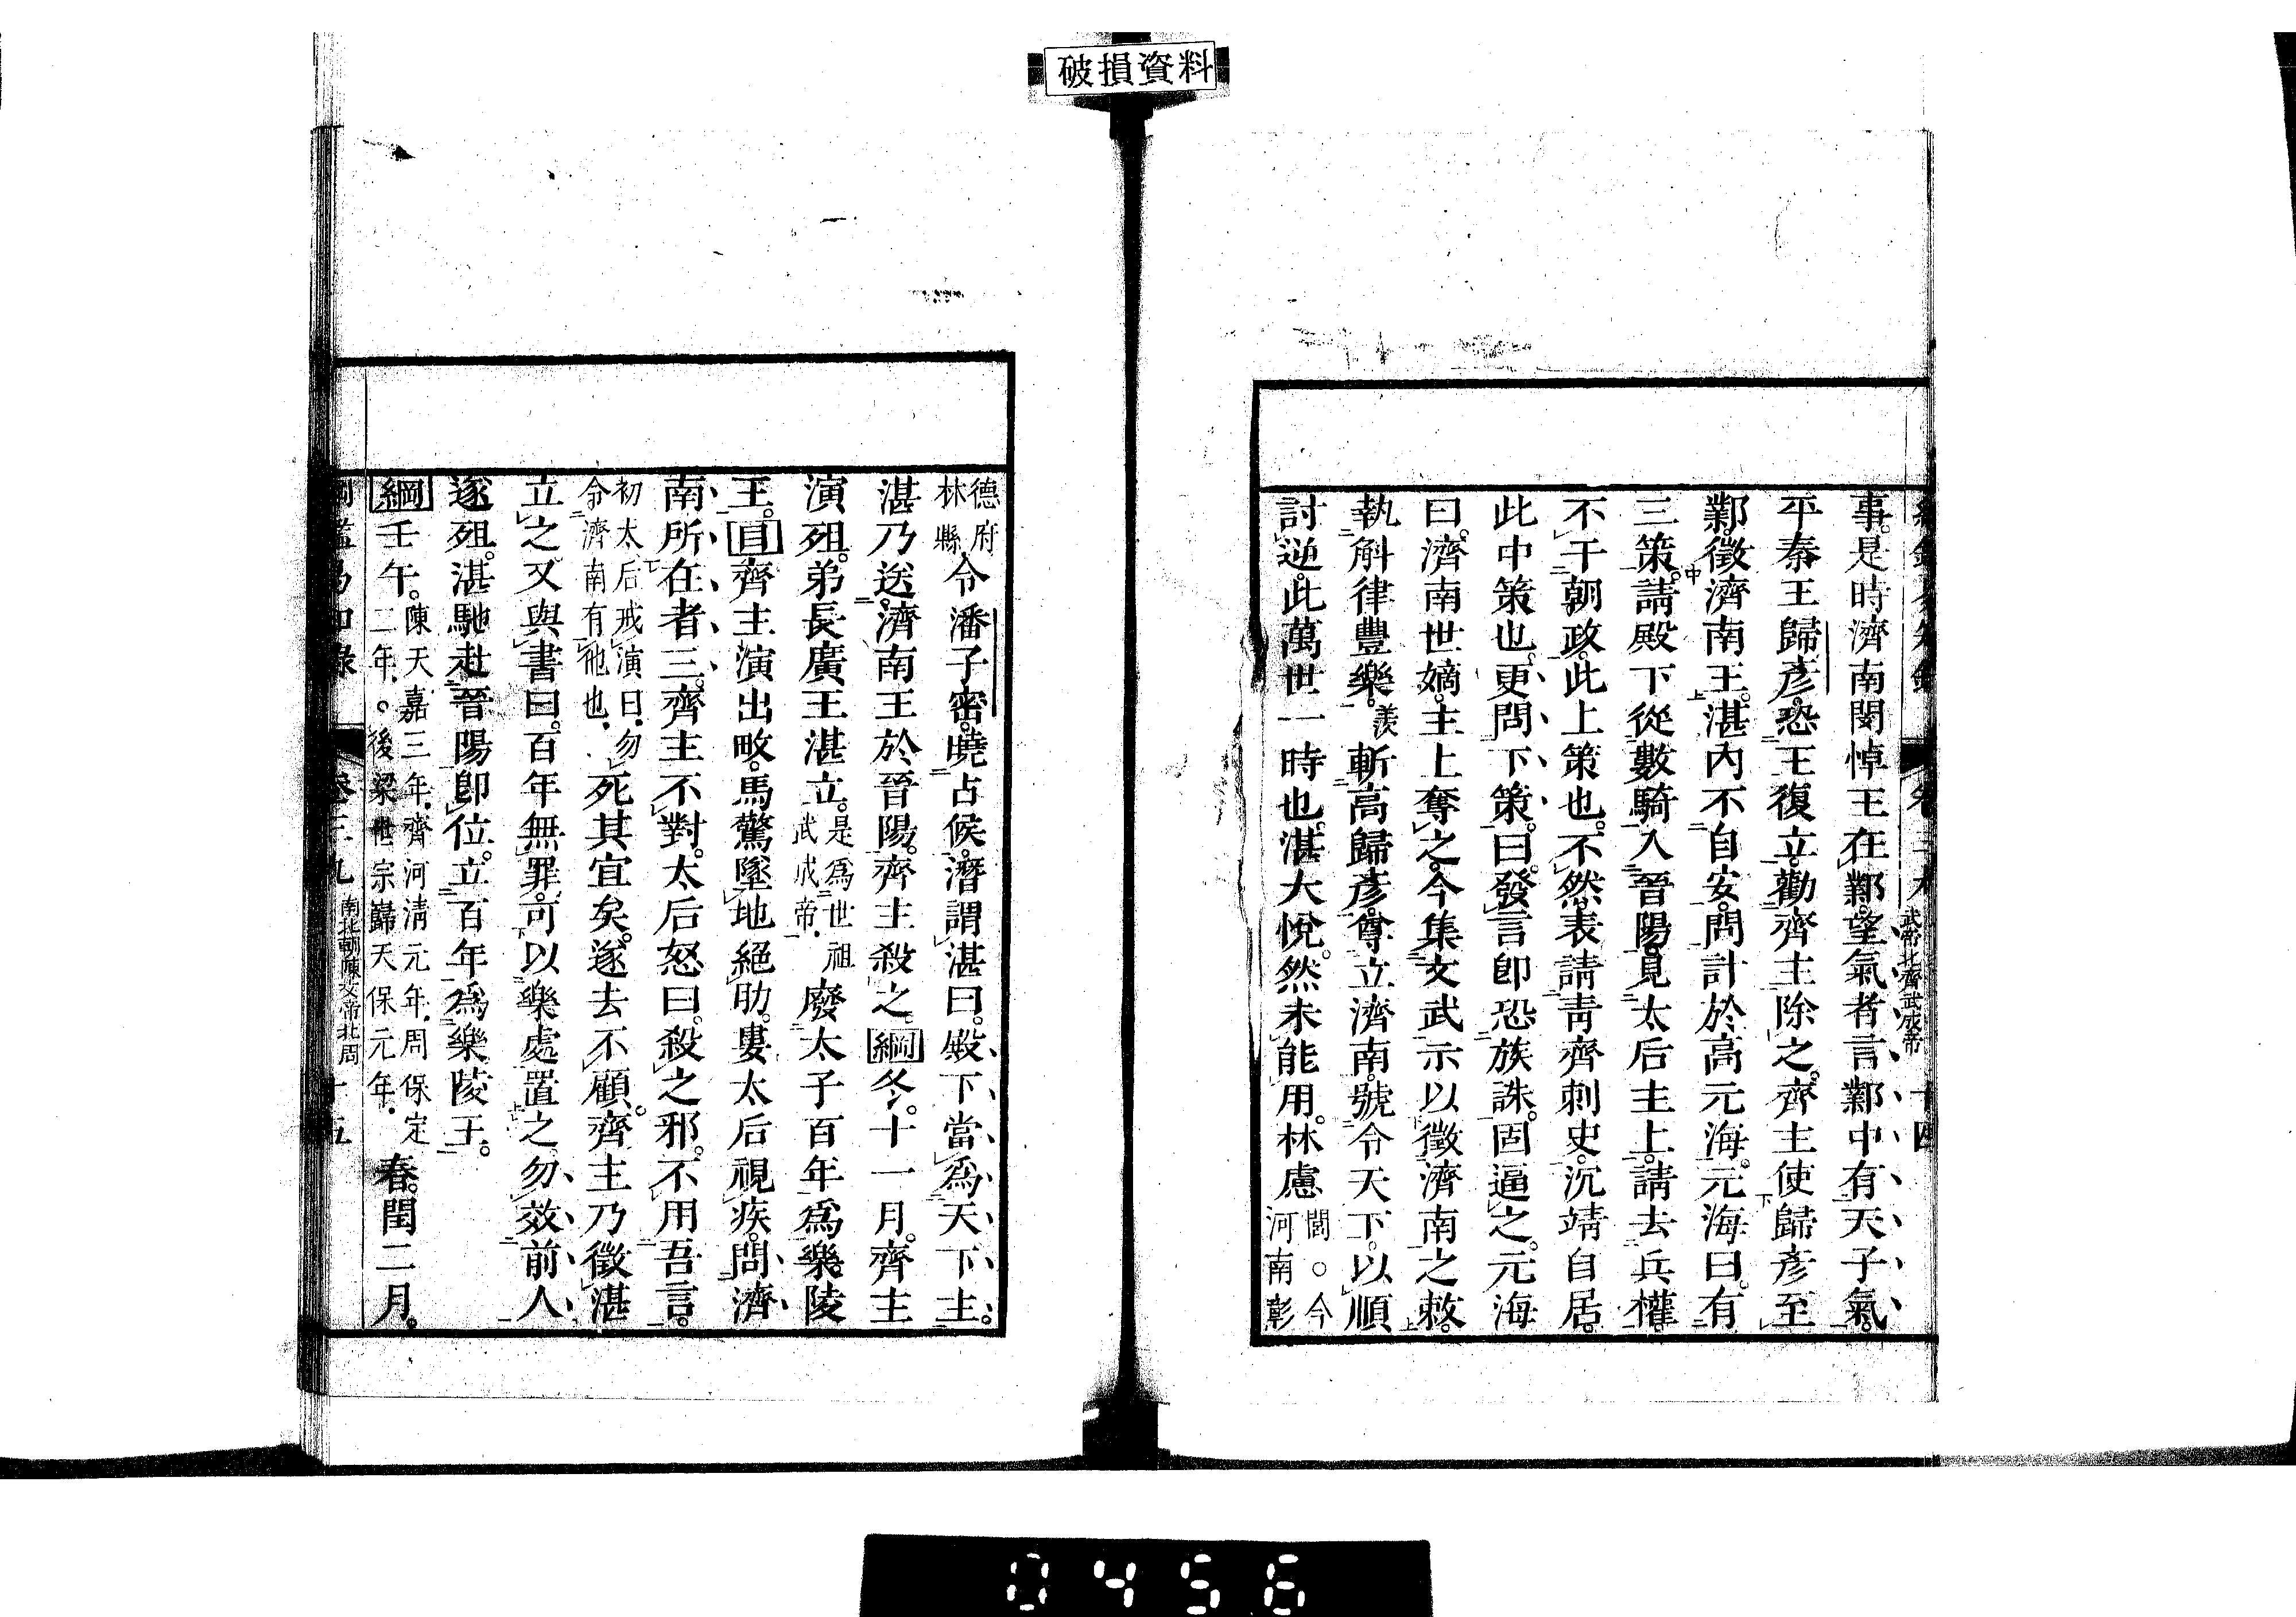 破損資料
武帝北齊武成帝
十四
事。是時濟南閔悼王在鄴。望氣者言鄴中有天子氣。
平秦王歸彥。恐王復立。勸齊主除之。齊主使歸彥至
鄴。徵濟南王。湛內不自安。問計於高元海。元海曰。有
三策。請殿下從數騎入晉陽。見太后主上。請去兵權。
不干朝政。此上策也。不然。表請青齊刺史。沉靖自居。
此中策也。更問下策。曰。發言卽恐族誅。固逼之。元海
曰。濟南世嫡。主上奪之。今集文武示以徵濟南之敕。
執斛律豐樂。羨斬高歸彥。尊立濟南。號令天下。以順
討逆。此萬世一時也。湛大悅。然未能用。林慮閭。○今河南彰
德府林縣。令潘子密。曉占候。潛謂湛曰。殿下當爲天下主。
湛乃送濟南王於晉陽。齊主殺之。綱冬。十一月。齊主
演殂。弟長廣王湛立。是爲世祖武成帝。廢太子百年爲樂陵
王。目齊主演出畋。馬驚墜地絕肋。婁太后視疾。問濟
南所在者三。齊主不對。太后怒曰。殺之邪。不用吾言。
初太后戒演曰。勿令濟南有他也。死其宜矣。遂去不顧。齊主乃徵湛
立之。又與書曰。百年無罪。可以樂處置之。勿效前人
遂殂。湛馳赴晉陽卽位。立百年爲樂陵王。
綱壬午。陳天嘉三年。齊河淸元年。周保定二年。○後梁世宗巋天保元年。春。閏二月。
南北朝陳文帝北周
十五
0456